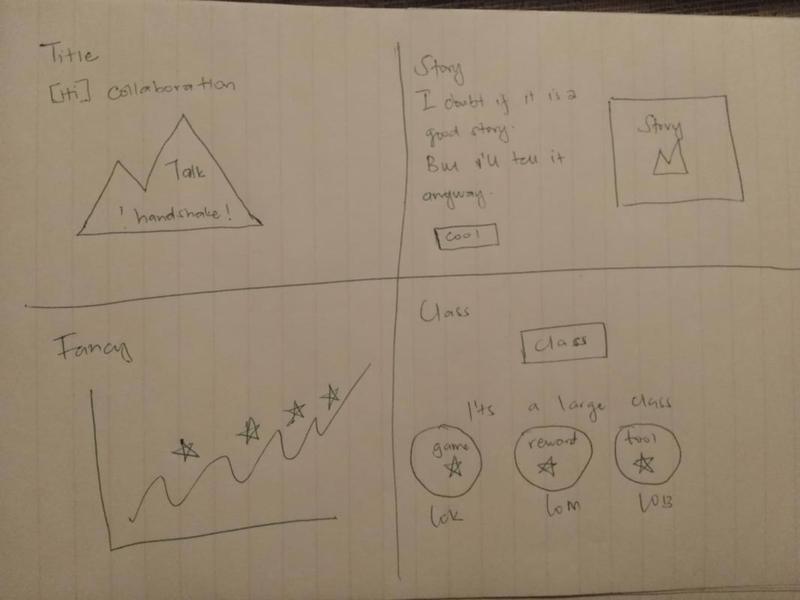 Title
[iti] collaboration
Talk
! handshake!
Story
I doubt if it is a
good story.
But I'll tell it
anyway.
cool
Story
Fancy
Class
class
It's a large class
game
reward
tool
lok
lom
lOB